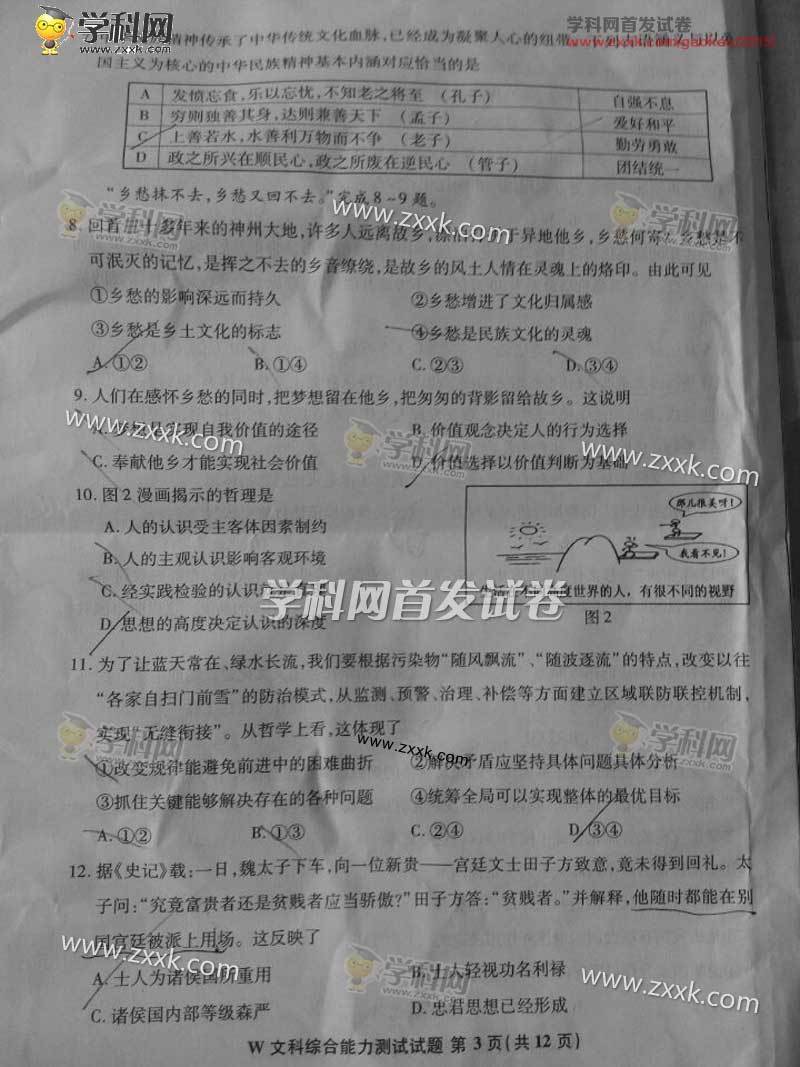 学科网首发试卷
精神传承了中华传统文化血脉,已经成为凝聚人心的纽带
国主义为核心的中华民族精神基本内涵对应恰当的是
A 发愤忘食,乐以忘忧,不知老之将至 (孔子) 自强不息
B 穷则独善其身,达则兼善天下 (孟子) 爱好和平
C 上善若水,水善利万物而不争 (老子) 勤劳勇敢
D 政之所兴在顺民心,政之所废在逆民心 (管子) 团结统一
“乡愁抹不去,乡愁又回不去。”完成8~9题。
8. 回首三十多年来的神州大地,许多人远离故乡,于异地他乡,乡愁何寄?乡愁是不
可泯灭的记忆,是挥之不去的乡音缭绕,是故乡的风土人情在灵魂上的烙印。由此可见
①乡愁的影响深远而持久 ②乡愁增进了文化归属感
③乡愁是乡土文化的标志 ④乡愁是民族文化的灵魂
A.①② B.①④ C.②③ D.③④
9. 人们在感怀乡愁的同时,把梦想留在他乡,把匆匆的背影留给故乡。这说明
A. 实现自我价值的途径 B. 价值观念决定人的行为选择
C. 奉献他乡才能实现社会价值 D. 价值选择以价值判断为基础
10. 图2漫画揭示的哲理是
A. 人的认识受主客体因素制约
B. 人的主观认识影响客观环境
C. 经实践检验的认识
D. 思想的高度决定认识的深度
那儿很美呀!
我看不见!
度世界的人,有很不同的视野
图2
11. 为了让蓝天常在、绿水长流,我们要根据污染物“随风飘流”、“随波逐流”的特点,改变以往
“各家自扫门前雪”的防治模式,从监测、预警、治理、补偿等方面建立区域联防联控机制,
实现“无缝衔接”。从哲学上看,这体现了
①改变规律能避免前进中的困难曲折 ②解决矛盾应坚持具体问题具体分析
③抓住关键能够解决存在的各种问题 ④统筹全局可以实现整体的最优目标
A.①② B.①③ C.②④ D.③④
12. 据《史记》载:一日,魏太子下车,向一位新贵——宫廷文士田子方致意,竟未得到回礼。太
子问:“究竟富贵者还是贫贱者应当骄傲?”田子方答:“贫贱者。”并解释,他随时都能在别
国宫廷被派上用场。这反映了
A. 士人为诸侯国所重用 B. 士人轻视功名利禄
C. 诸侯国内部等级森严 D. 忠君思想已经形成
W 文科综合能力测试试题 第3页(共12页)
学科网
www.zxxk.com
学科网首发试卷